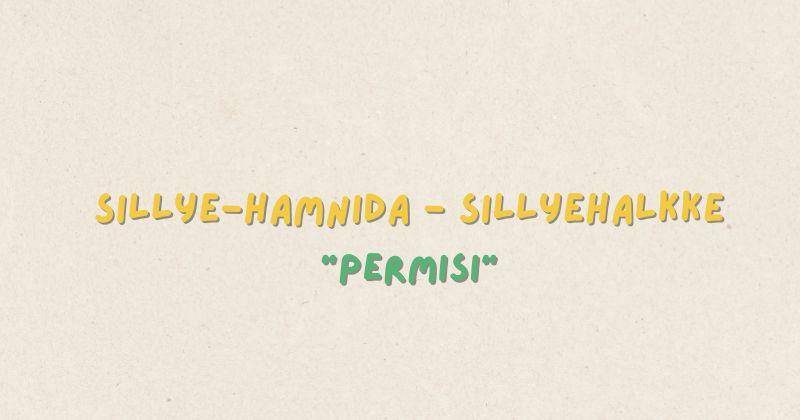 SILLYE-HAMNIDA - SILLYEHALKKE
"PERMISI"